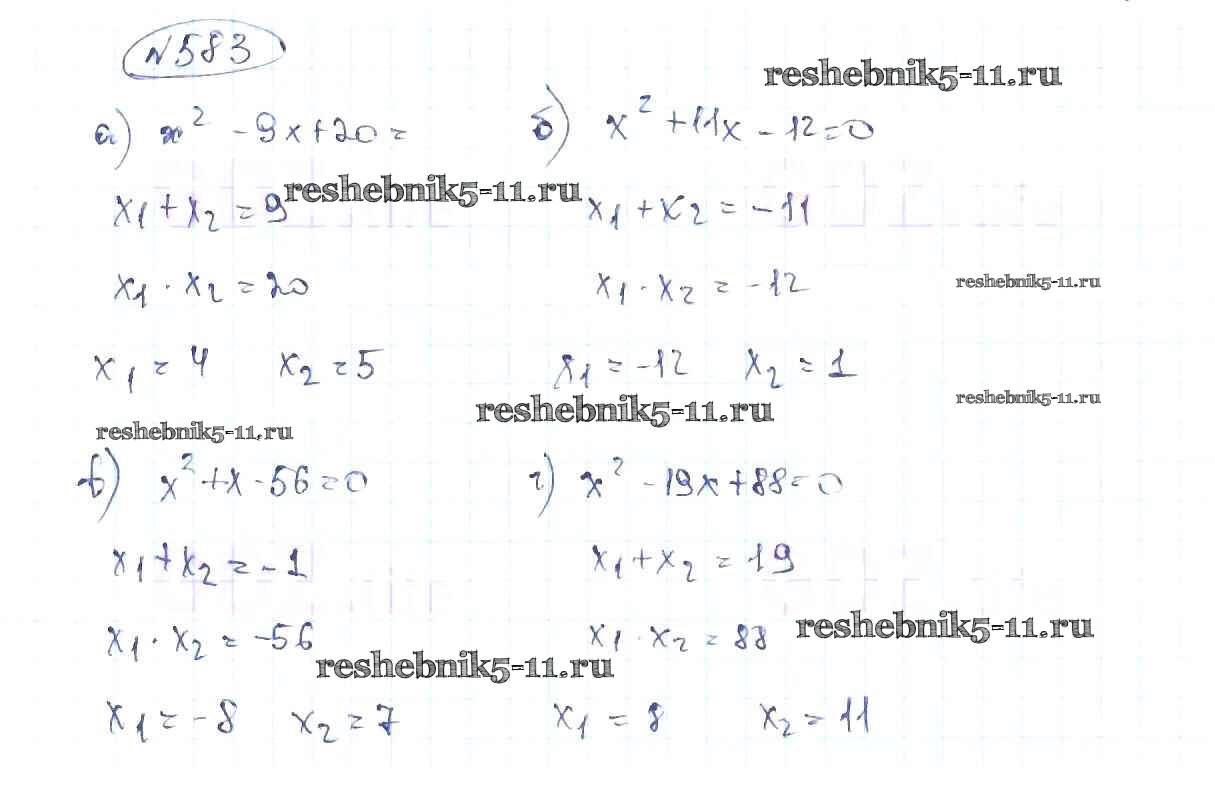 №583
reshebnik5-11.ru
а) x² - 9x+20=
б) x² +11x - 12=0
x₁+x₂ = 9
reshebnik5-11.ru
x₁ + x₂ = -11
x₁ · x₂ = 20
x₁ · x₂ = -12
reshebnik5-11.ru
x₁ = 4 x₂ = 5
x₁ = -12 x₂ = 1
reshebnik5-11.ru
reshebnik5-11.ru
reshebnik5-11.ru
в) x² + x - 56 = 0
г) x² - 19x + 88 = 0
x₁ + x₂ = -1
x₁ + x₂ = 19
x₁ · x₂ = -56
x₁ · x₂ = 88
reshebnik5-11.ru
reshebnik5-11.ru
x₁ = -8 x₂ = 7
x₁ = 8 x₂ = 11